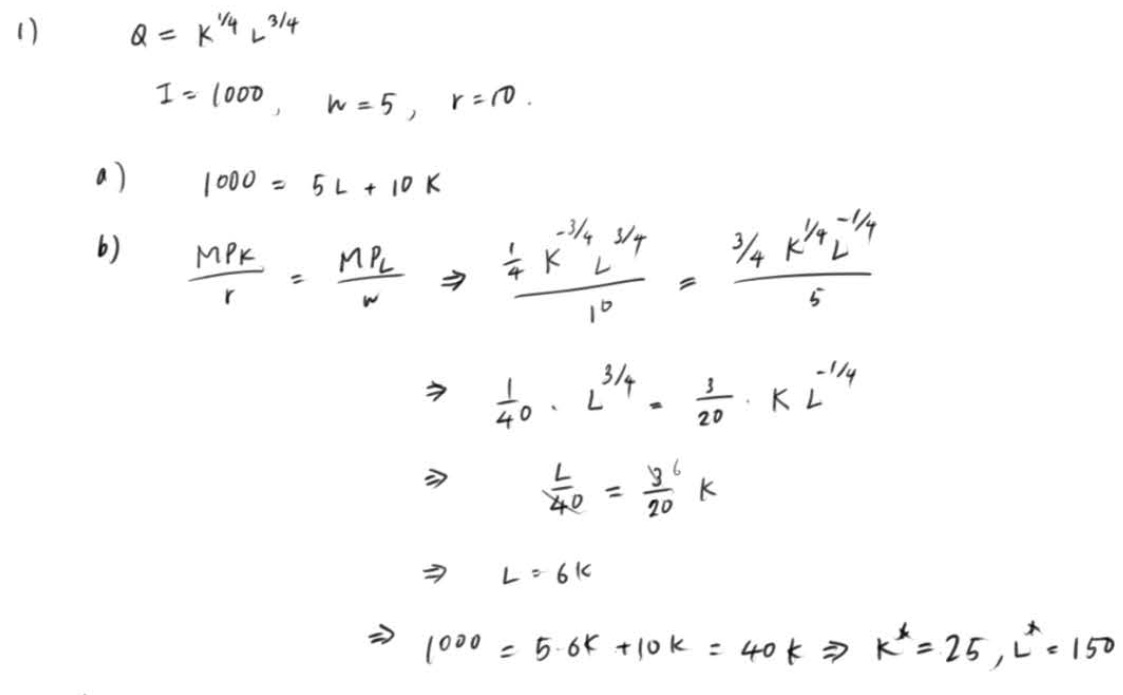 1) Q = K^1/4 L^3/4
I = 1000, w = 5, r = 10.
a) 1000 = 5L + 10K
b) MPK/r = MPL/w ⇒ 1/4 K^-3/4 L^3/4 / 10 = 3/4 K^1/4 L^-1/4 / 5
⇒ 1/40 · L^3/4 = 3/20 · K L^-1/4
⇒ L/40 = 3 6/20 K
⇒ L = 6K
⇒ 1000 = 5·6K + 10K = 40K ⇒ K* = 25, L* = 150